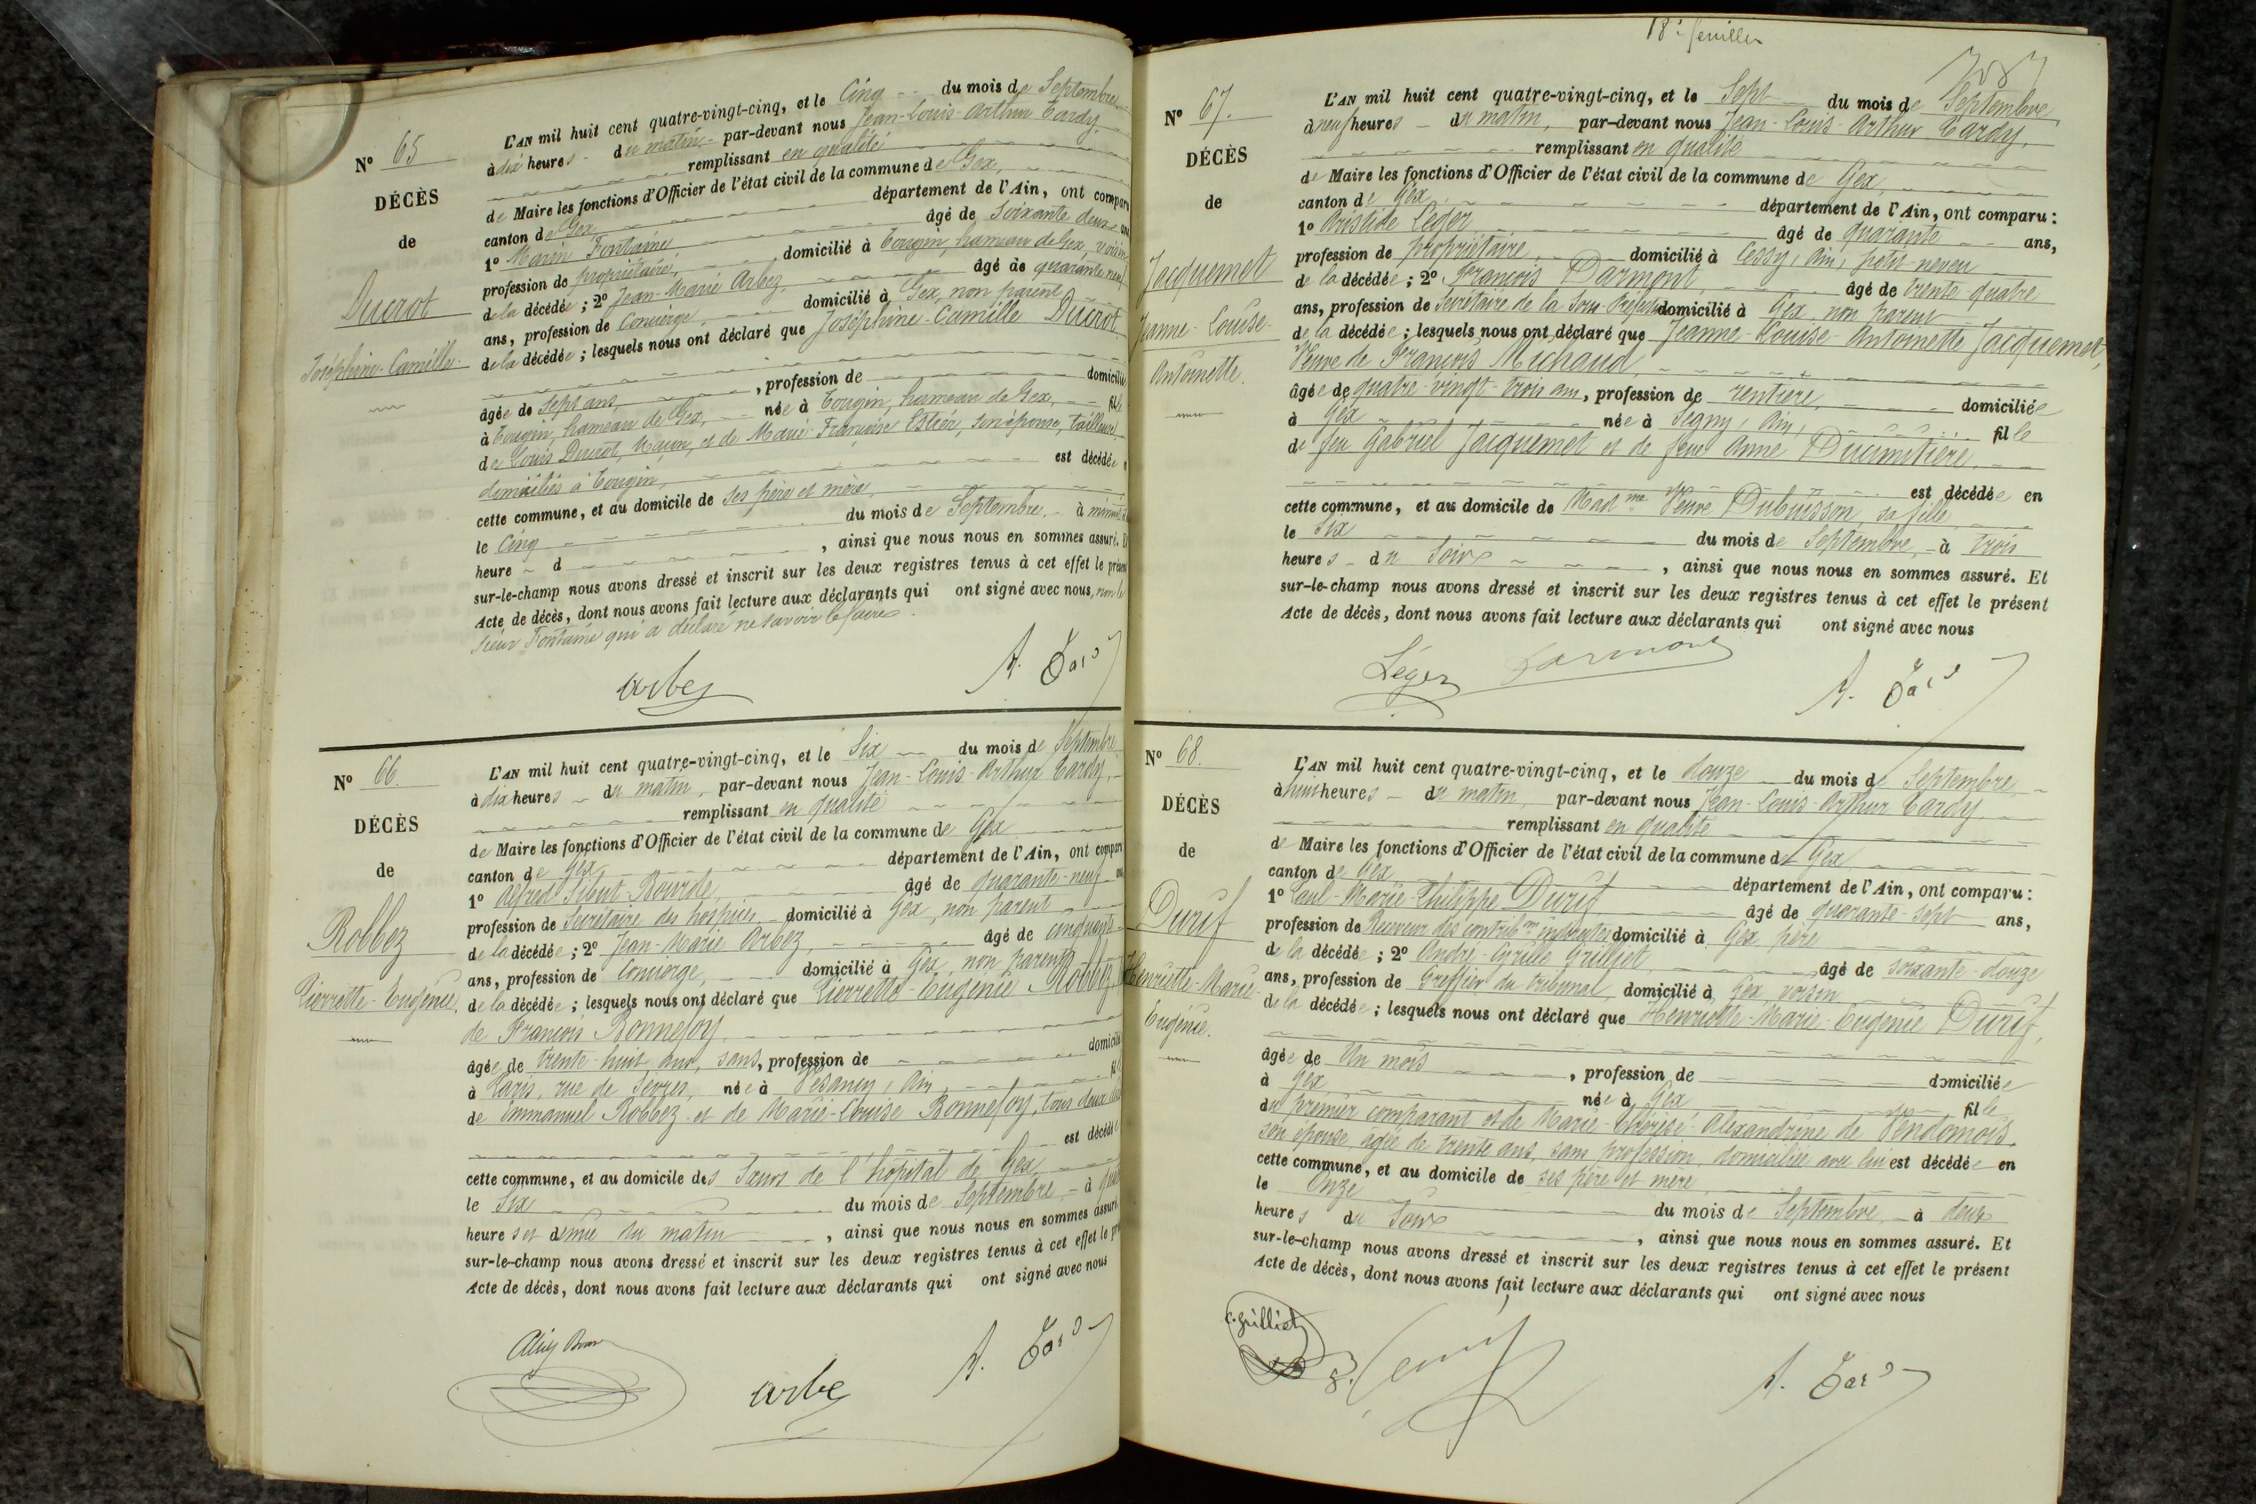 N° 65
DÉCÈS
de
Ducrot
Joséphine-Camille
L'AN mil huit cent quatre-vingt-cinq, et le Cinq du mois de Septembre
à dix heures du matin par-devant nous Jean-Louis-Arthur Tardy,
remplissant en qualité
de Maire les fonctions d'Officier de l'état civil de la commune de Gex,
canton de Gex département de l'Ain, ont comparu
1° Marin Fontaine âgé de soixante deux ans
profession de propriétaire, domicilié à Tougin, hameau de Gex, voisin
de la décédée ; 2° Jean-Marie Arbez, âgé de quarante neuf
ans, profession de Concierge, domicilié à Gex, non parent
de la décédée ; lesquels nous ont déclaré que Joséphine-Camille Ducrot
âgée de sept ans, , profession de domicilié
à Tougin, hameau de Gex, née à Tougin, hameau de Gex, fille
de Louis Ducrot, Maçon, et de Marie Françoise son épouse, tailleuse,
domiciliés à Tougin, est décédée
cette commune, et au domicile de ses père et mère,
le Cinq du mois de Septembre, à minuit
heure d , ainsi que nous nous en sommes assuré.
sur-le-champ nous avons dressé et inscrit sur les deux registres tenus à cet effet le présent
Acte de décès, dont nous avons fait lecture aux déclarants qui ont signé avec nous, non le
sieur Fontaine qui a déclaré ne savoir le faire.
Arbez
A. Tardy
N° 66.
DÉCÈS
de
Robbez
Pierrette-Eugénie.
L'AN mil huit cent quatre-vingt-cinq, et le Six du mois de Septembre
à dix heures du matin, par-devant nous Jean-Louis-Arthur Tardy,
remplissant en qualité
de Maire les fonctions d'Officier de l'état civil de la commune de Gex
canton de Gex département de l'Ain, ont comparu
1° Alfred Sibut-Bourde, âgé de quarante-neuf ans
profession de Secrétaire des hospices, domicilié à Gex, non parent
de la décédée ; 2° Jean-Marie Arbez, âgé de cinquante
ans, profession de Concierge, domicilié à Gex, non parent
de la décédée ; lesquels nous ont déclaré que Pierrette-Eugénie Robbez
de François Bonnefoy,
âgée de trente-huit ans, sans, profession de domicilié
à Paris, rue de Sèvres, née à Vesancy, Ain, fille
de Emmanuel Robbez et de Marie-Louise Bonnefoy, tous deux
est décédée
cette commune, et au domicile des Sœurs de l'hôpital de Gex,
le Six du mois de Septembre, à
heures et demie du matin , ainsi que nous nous en sommes assuré
sur-le-champ nous avons dressé et inscrit sur les deux registres tenus à cet effet le
Acte de décès, dont nous avons fait lecture aux déclarants qui ont signé avec nous
Arbe
A. Tardy
18e feuillet
N° 67.
DÉCÈS
de
Jacquemet
Jeanne-Louise-
Antoinette.
L'AN mil huit cent quatre-vingt-cinq, et le Sept du mois de Septembre
à neuf heures du matin, par-devant nous Jean-Louis-Arthur Tardy,
remplissant en qualité
de Maire les fonctions d'Officier de l'état civil de la commune de Gex,
canton de Gex département de l'Ain, ont comparu :
1° Aristide Léger âgé de quarante ans,
profession de propriétaire, domicilié à Cessy, Ain, petit-neveu
de la décédée ; 2° François Darmont, âgé de trente-quatre
ans, profession de Secrétaire de la Sous-Préfecture domicilié à Gex, non parent
de la décédée ; lesquels nous ont déclaré que Jeanne-Louise-Antoinette Jacquemet,
Veuve de François Michaud,
âgée de quatre-vingt-trois ans, profession de rentière, domiciliée
à Gex née à Segny, Ain, fille
de feu Gabriel Jacquemet et de feue Anne Ducimetière,
est décédée en
cette commune, et au domicile de Madme Veuve Dubuisson, sa fille
le Six du mois de Septembre, à trois
heures du Soir , ainsi que nous nous en sommes assuré. Et
sur-le-champ nous avons dressé et inscrit sur les deux registres tenus à cet effet le présent
Acte de décès, dont nous avons fait lecture aux déclarants qui ont signé avec nous
Léger Darmont
A. Tardy
N° 68.
DÉCÈS
de
Duruf
Henriette-Marie-
Eugénie.
L'AN mil huit cent quatre-vingt-cinq, et le douze du mois de Septembre
à huit heures du matin, par-devant nous Jean-Louis-Arthur Tardy
remplissant en qualité
de Maire les fonctions d'Officier de l'état civil de la commune de Gex
canton de Gex département de l'Ain, ont comparu :
1° Paul-Marie-Philippe Duruf âgé de quarante-sept ans,
profession de Receveur des contribons indirectes domicilié à Gex père
de la décédée ; 2° André-Cyrille Grilliet, âgé de soixante-douze
ans, profession de Greffier du tribunal, domicilié à Gex, voisin
de la décédée ; lesquels nous ont déclaré que Henriette-Marie-Eugénie Duruf,
âgée de Un mois , profession de domiciliée
à Gex née à Gex fille
du premier comparant et de Marie-Thérèse-Alexandrine de Vendomois,
son épouse, âgée de trente ans, sans profession, domiciliée avec lui est décédée en
cette commune, et au domicile de ses père et mère
le Onze du mois de Septembre à deux
heures du Soir , ainsi que nous nous en sommes assuré. Et
sur-le-champ nous avons dressé et inscrit sur les deux registres tenus à cet effet le présent
Acte de décès, dont nous avons fait lecture aux déclarants qui ont signé avec nous
C. Grilliet
A. Tardy